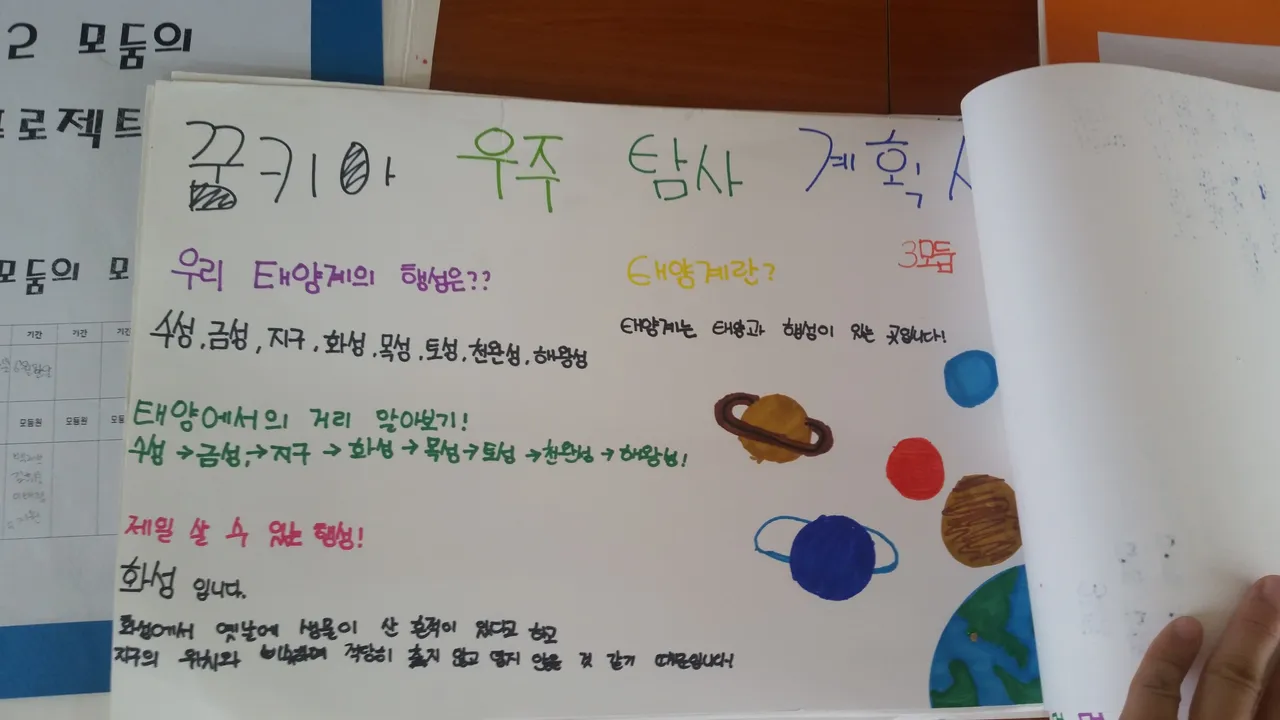 2 모둠의
프로젝트
모둠의 모
기간 기간 기간
모둠원 모둠원
꿈키아 우주 탐사 계획
3모둠
우리 태양계의 행성은??
수성, 금성, 지구, 화성, 목성, 토성, 천왕성, 해왕성
태양계란?
태양계는 태양과 행성이 있는 곳입니다!
태양에서의 거리 알아보기!
수성 → 금성, → 지구 → 화성 → 목성 → 토성 → 천왕성 → 해왕성!
제일 살 수 있는 행성!
화성 입니다.
화성에서 옛날에 생물이 산 흔적이 있다고 하고
지구의 위치와 비슷하여 적당히 춥지 않고 덥지 않을 것 같기 때문입니다!